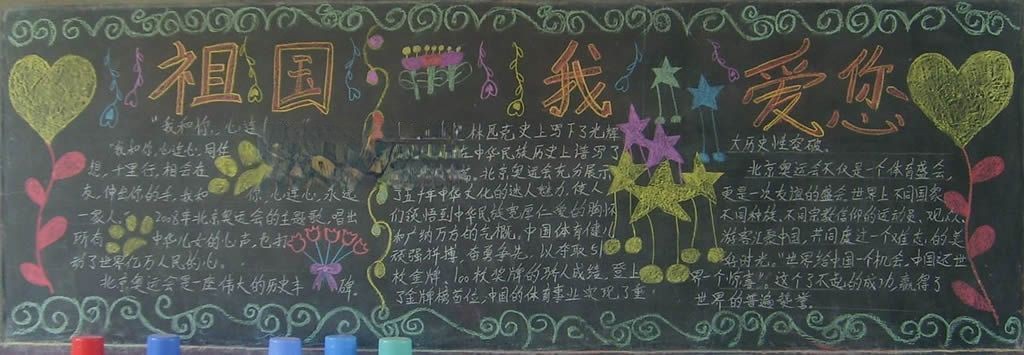 祖国 我爱你
"我和你,心连
"我和你,心连心,同住
想,千里行,相会在
友,伸出你的手,我和 你,心连心,永远
一家人。"2008年北京奥运会的主题歌,唱出
所有 中华儿女的心声,也打
动了世界亿万人民的心。
北京奥运会是一座伟大的历史丰 碑。
林匹克史上写下了光辉
在中华民族历史上谱写了
北京奥运会充分展示
了五千年中华文化的迷人魅力,使人
们领悟到中华民族宽厚仁爱的胸怀
和广纳万方的气概。中国体育健儿
顽强拼搏,奋勇争先,以夺取51
枚金牌,100枚奖牌的骄人成绩,登上
了金牌榜首位,中国的体育事业实现了重
大历史性突破。
北京奥运会不仅是一个体育盛会,
更是一次友谊的盛会,世界上不同国家,
不同种族,不同宗教信仰的运动员、观众、
游客汇聚中国,共同度过一个难忘的美
好时光。"世界给中国一个机会,中国还世
界一个惊喜"。这个了不起的成功,赢得了
世界的普遍赞誉。